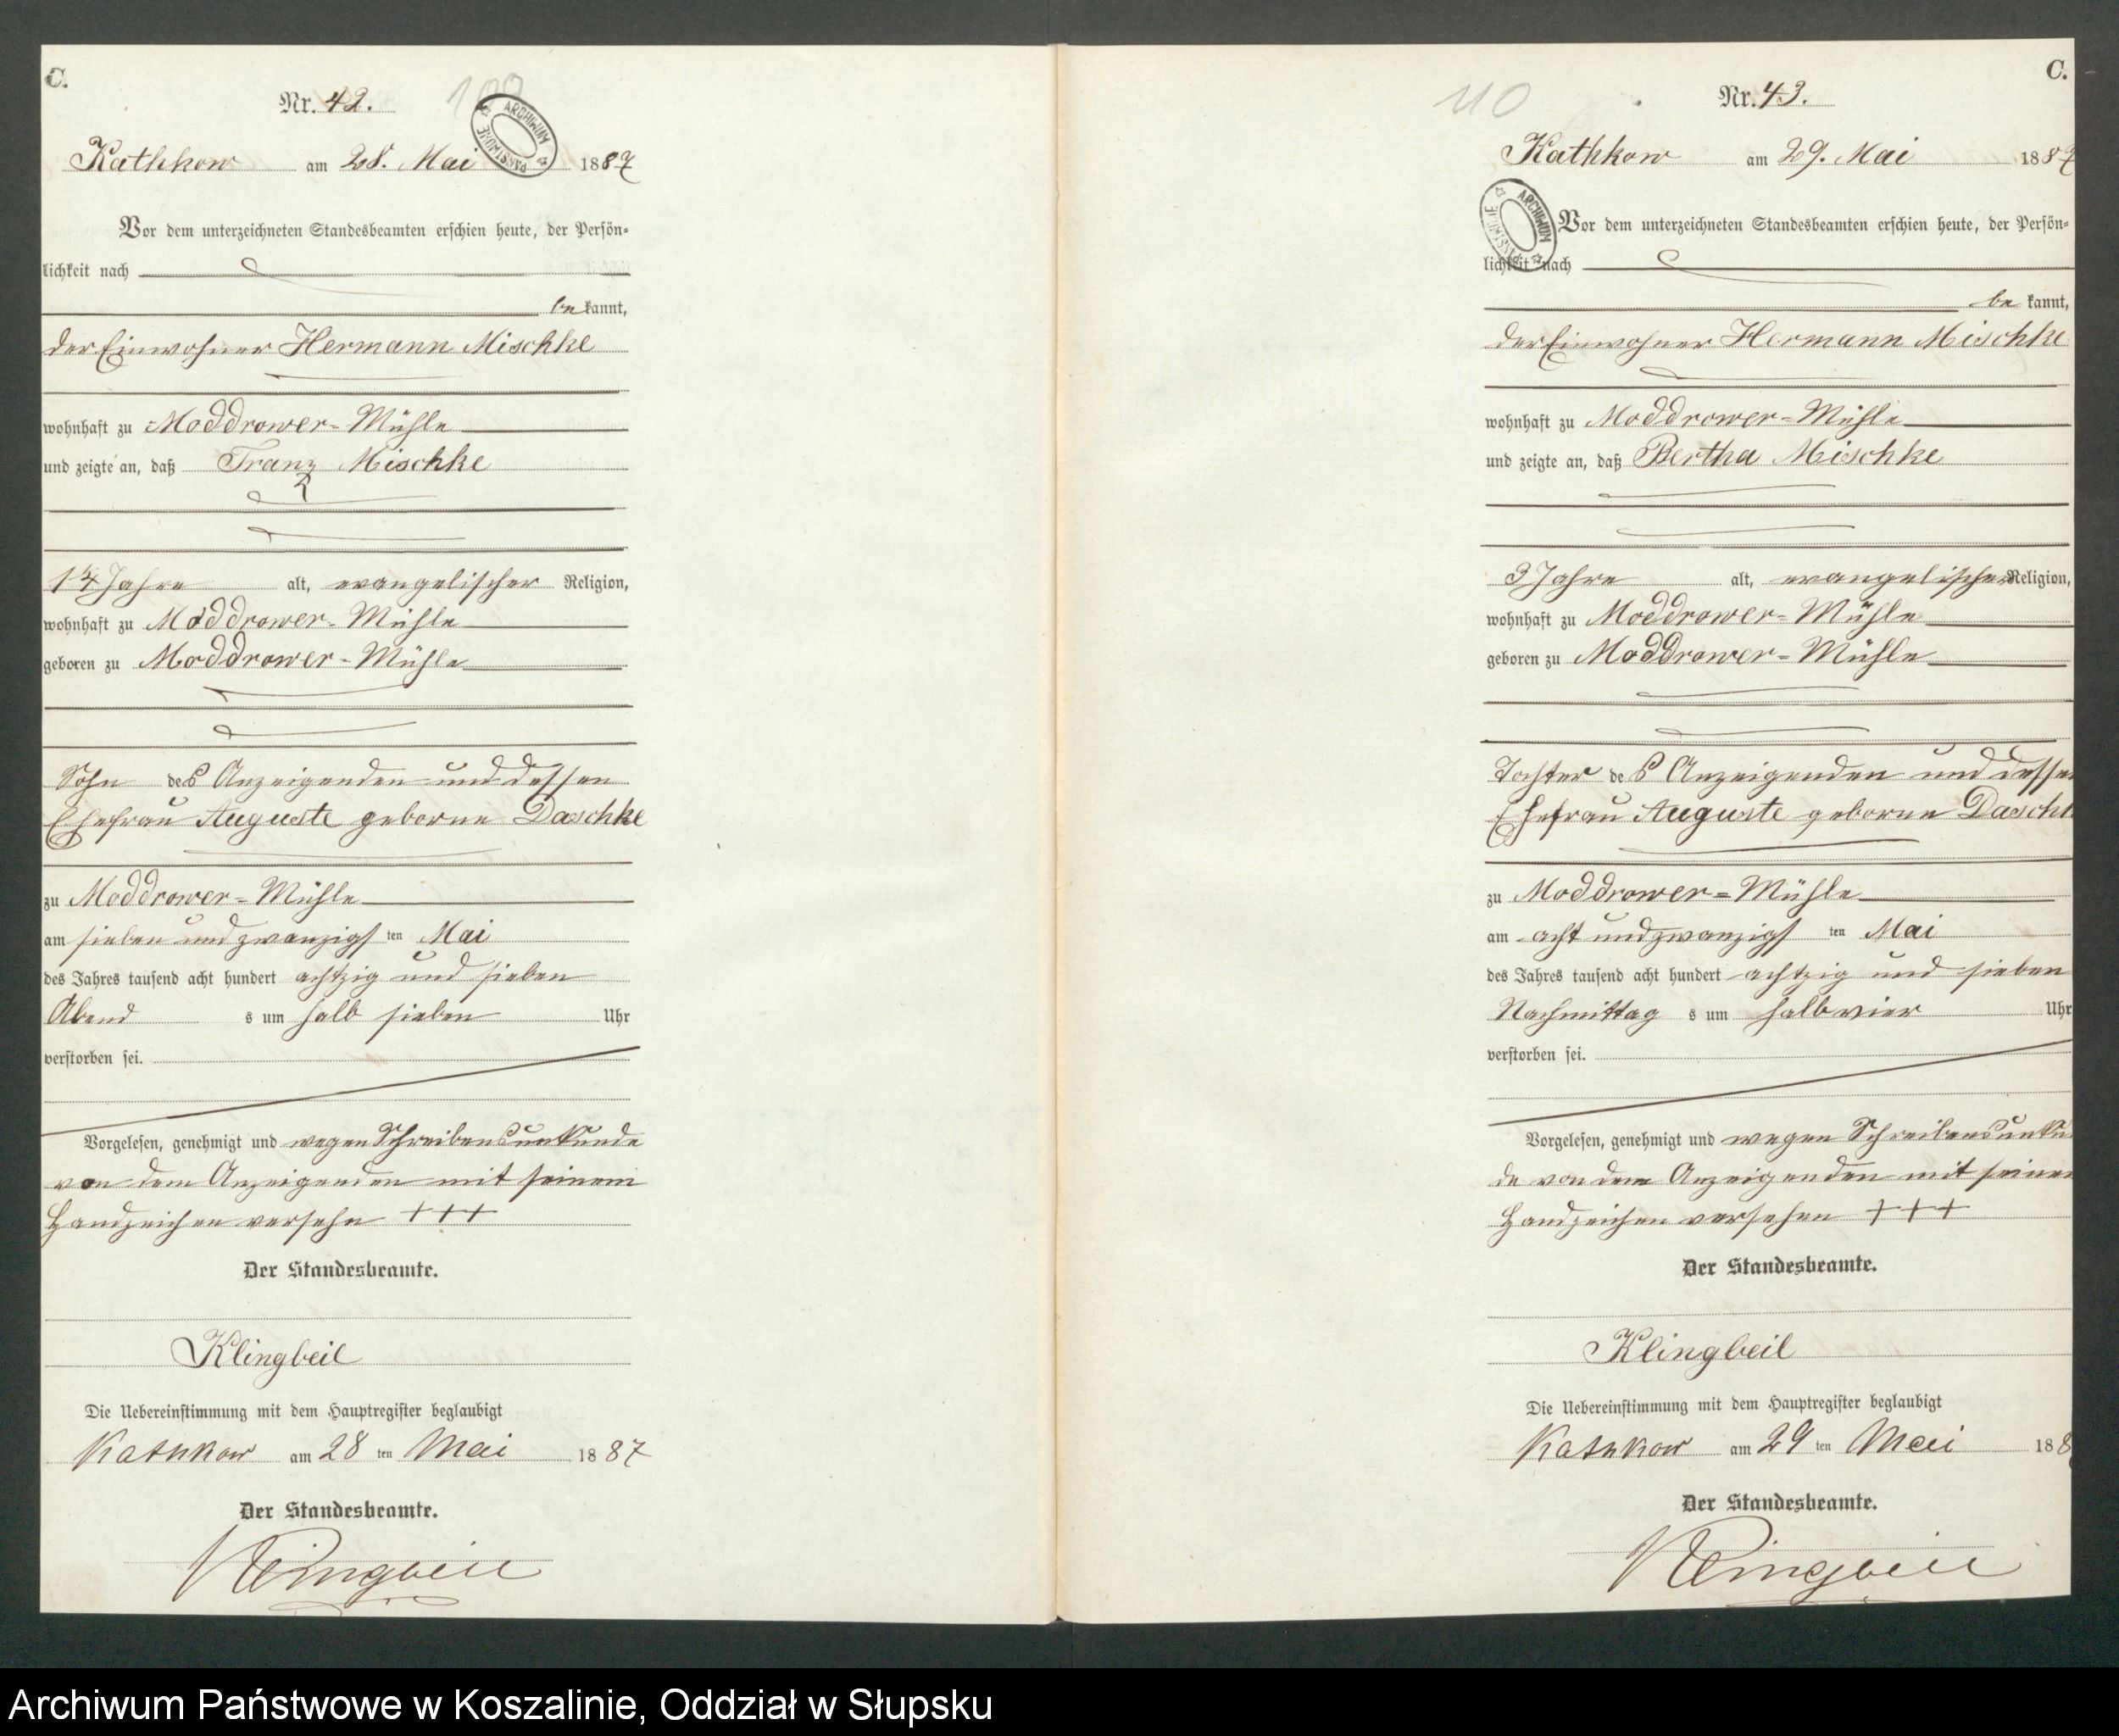 C.
Nr. 42.
109
ARCHIWUM PAŃSTWOWE
Kathkow am 28. Mai 1887
Vor dem unterzeichneten Standesbeamten erschien heute, der Persön-
lichkeit nach
be kannt,
der Einwohner Hermann Mischke
wohnhaft zu Moddrower-Mühle
und zeigte an, daß Franz Mischke
Jahre alt, evangelischer Religion,
wohnhaft zu Moddrower-Mühle
geboren zu Moddrower-Mühle
Sohn des Anzeigenden und dessen
Ehefrau Auguste geborne Daschke
zu Moddrower-Mühle
am sieben und zwanzigsten Mai
des Jahres tausend acht hundert achtzig und sieben
Abend s um halb sieben Uhr
verstorben sei.
Vorgelesen, genehmigt und wegen Schreibensunkunde
von dem Anzeigenden mit seinem
Handzeichen versehn +++
Der Standesbeamte.
Klingbeil
Die Uebereinstimmung mit dem Hauptregister beglaubigt
Kathkow am 28 ten Mai 1887
Der Standesbeamte.
Klingbeil
C.
Nr. 43.
110
ARCHIWUM PAŃSTWOWE
Kathkow am 29. Mai 1887
Vor dem unterzeichneten Standesbeamten erschien heute, der Persön-
lichkeit nach
be kannt,
der Einwohner Hermann Mischke
wohnhaft zu Moddrower-Mühle
und zeigte an, daß Bertha Mischke
3 Jahre alt, evangelischer Religion,
wohnhaft zu Moddrower-Mühle
geboren zu Moddrower-Mühle
Tochter des Anzeigenden und dessen
Ehefrau Auguste geborne Daschk
zu Moddrower-Mühle
am acht und zwanzigsten Mai
des Jahres tausend acht hundert achtzig und sieben
Nachmittag s um halb vier Uhr
verstorben sei.
Vorgelesen, genehmigt und wegen Schreibensunkun
de von dem Anzeigenden mit seinem
Handzeichen versehen +++
Der Standesbeamte.
Klingbeil
Die Uebereinstimmung mit dem Hauptregister beglaubigt
Kathkow am 29 ten Mai 188
Der Standesbeamte.
Klingbeil
Archiwum Państwowe w Koszalinie, Oddział w Słupsku